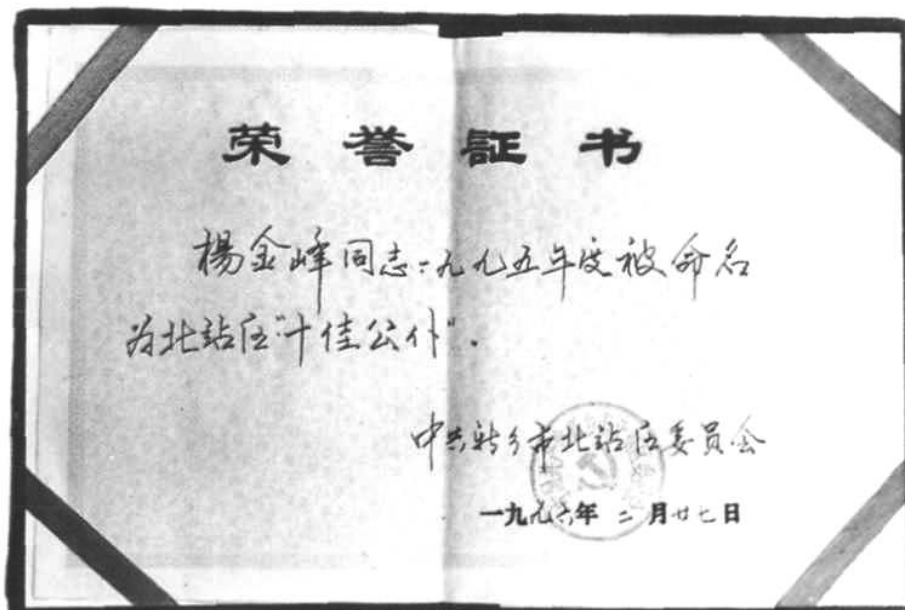 荣誉証书
楊金峰同志一九九五年度被命名
为北站区“十佳公仆”.
中共新乡市北站区委员会
一九九六年二月廿七日